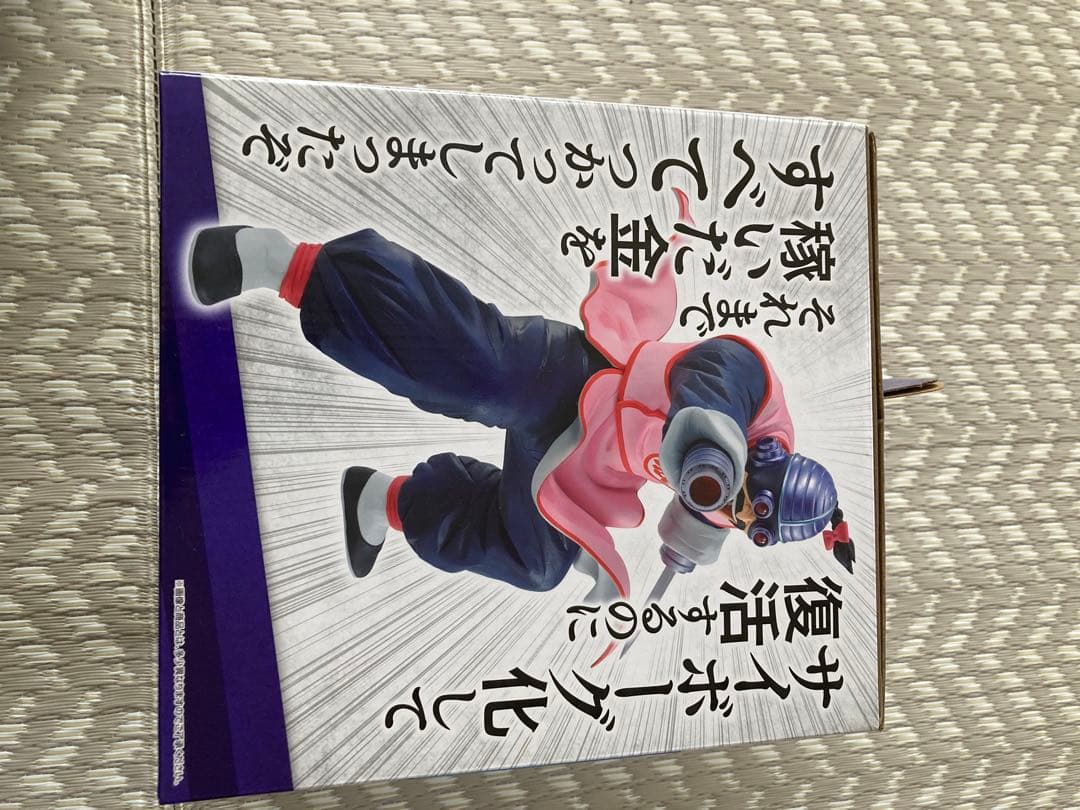 サイボーグ化して
復活するのに
それまで
稼いだ金を
すべて
つかってしまったぞ